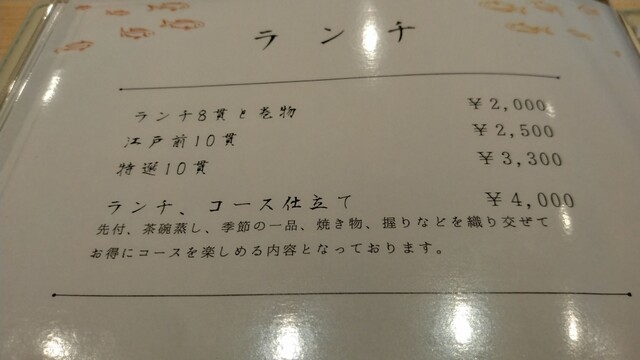 ランチ
ランチ8貫と巻物 ¥2,000
江戸前10貫 ¥2,500
特選10貫 ¥3,300
ランチ、コース仕立て ¥4,000
先付、茶碗蒸し、季節の一品、焼き物、握りなどを織り交ぜて
お得にコースを楽しめる内容となっております。